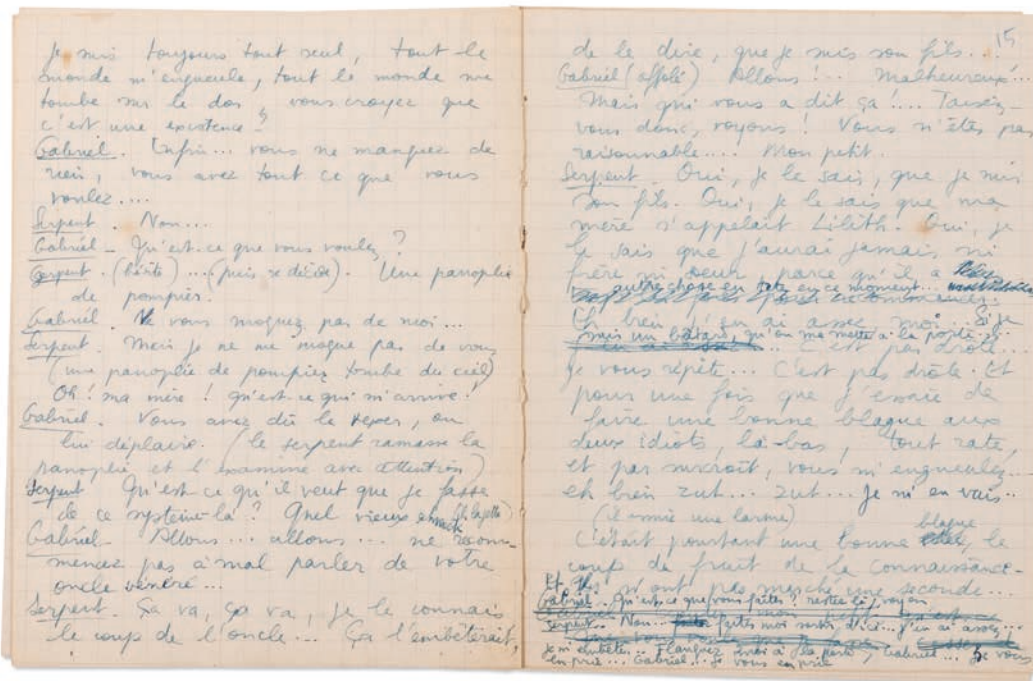 Je suis toujours tout seul, tout le
monde m'engueule, tout le monde me
tombe sur le dos vous croyez que
c'est une existence ?
Gabriel. Enfin... vous ne manquez de
rien, vous avez tout ce que vous
voulez....
Serpent. Non...
Gabriel - Qu'est-ce que vous voulez ?
Serpent. (hésite) ... (puis se décide). Une panoplie
de pompier.
Gabriel. Ne vous moquez pas de moi...
Serpent. Mais je ne me moque pas de vous
(une panoplie de pompier tombe du ciel)
Oh ! ma mère ! qu'est-ce qui m'arrive !
Gabriel. Vous avez dû le vexer, ou
lui déplaire. (le serpent ramasse la
panoplie et l'examine avec attention)
Serpent Qu'est-ce qu'il veut que je fasse
de ce système-là ? Quel vieux
Gabriel - Allons... allons... ne recom-
mencez pas à mal parler de votre
oncle vénéré...
Serpent. Ça va, ça va, je le connais
le coup de l'oncle... Ça l'embêterait,
15
de le dire, que je suis son fils...
Gabriel (affolé) Allons !.. Malheureux !...
Mais qui vous a dit ça !.... Taisez-
vous donc, voyons ! Vous n'êtes pas
raisonnable.... Mon petit.
Serpent - Oui, je le sais, que je suis
son fils. Oui, je le sais que ma
mère s'appelait Lilith. Oui, je
le sais que j'aurai jamais ni
frère ni soeur, parce qu'il a
autre chose en tête en ce moment...
Eh bien j'en ai assez, moi... Si je
suis un bâtard, qu'on me mette à la porte
C'est pas drôle...
Je vous répète... C'est pas drôle. Et
pour une fois que j'essaie de
faire une bonne blague aux
deux idiots, là-bas, tout rate,
et par surcroît, vous m'engueulez...
eh bien zut... zut... Je m'en vais..
(il essuie une larme)
C'était pourtant une bonne blague, le
coup du fruit de la connaissance.
Et ils n'ont pas marché une seconde...
Gabriel.. Qu'est-ce que vous faites ? restez ici, voyons
Serpent - Non... faites moi sortir d'ici... j'en ai assez...
Je m'embête... Flanquez moi à la porte, Gabriel... Je vous
en prie... Gabriel... Je vous en prie